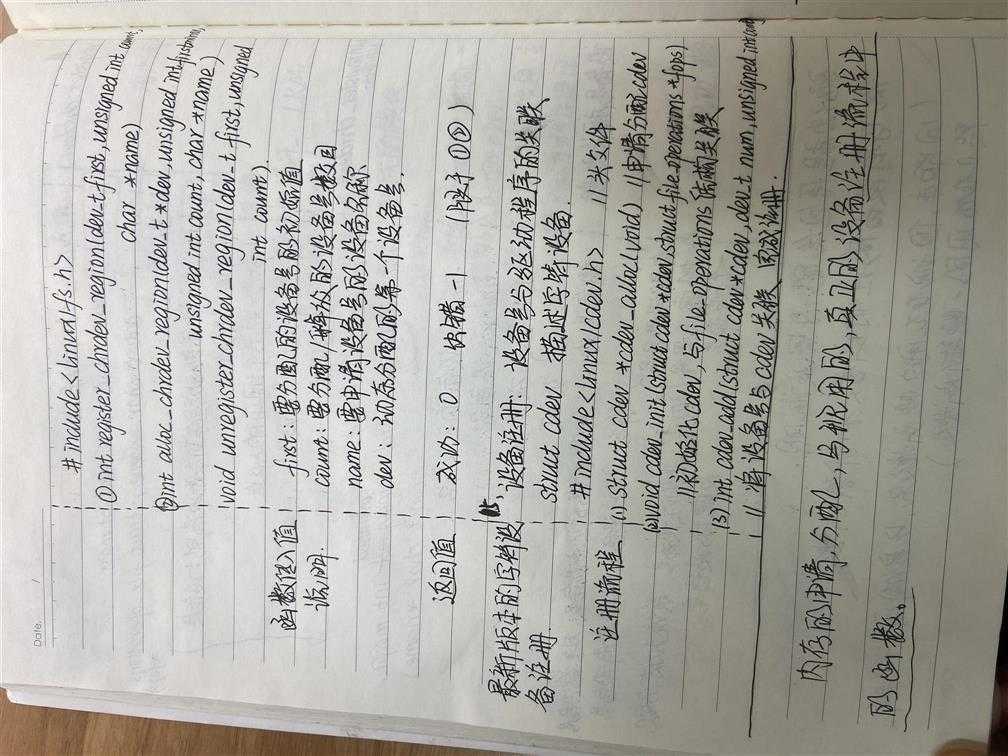 Date.
#include<linux/fs.h>
①int register_chrdev_region(dev_t first, unsigned int count,
char *name)
②int alloc_chrdev_region(dev_t *dev, unsigned int firstminor,
unsigned int count, char *name)
void unregister_chrdev_region(dev_t first, unsigned
int count).
函数传入值 first:要分配的设备号的初始值
说明. count:要分配/释放的设备号数目
name:要申请设备号的设备名称
dev:动态分配的第一个设备号.
返回值 成功:0 出错-1 (限于①②)
最新版本的字符设 设备注册:设备号与驱动程序的关联
备注册. struct cdev 描述字符设备.
#include<linux/cdev.h> //头文件
注册流程 (1) struct cdev *cdev_alloc(void) //申请分配cdev
(2)void cdev_init(struct cdev *cdev, struct file_operations *fops)
//初始化cdev,与file_operations结构关联
(3) int cdev_add(struct cdev *cdev, dev_t num, unsigned int count)
//将设备号与cdev关联
内存的申请,分配,与状用的,真正的设备注册流程中
的函数。